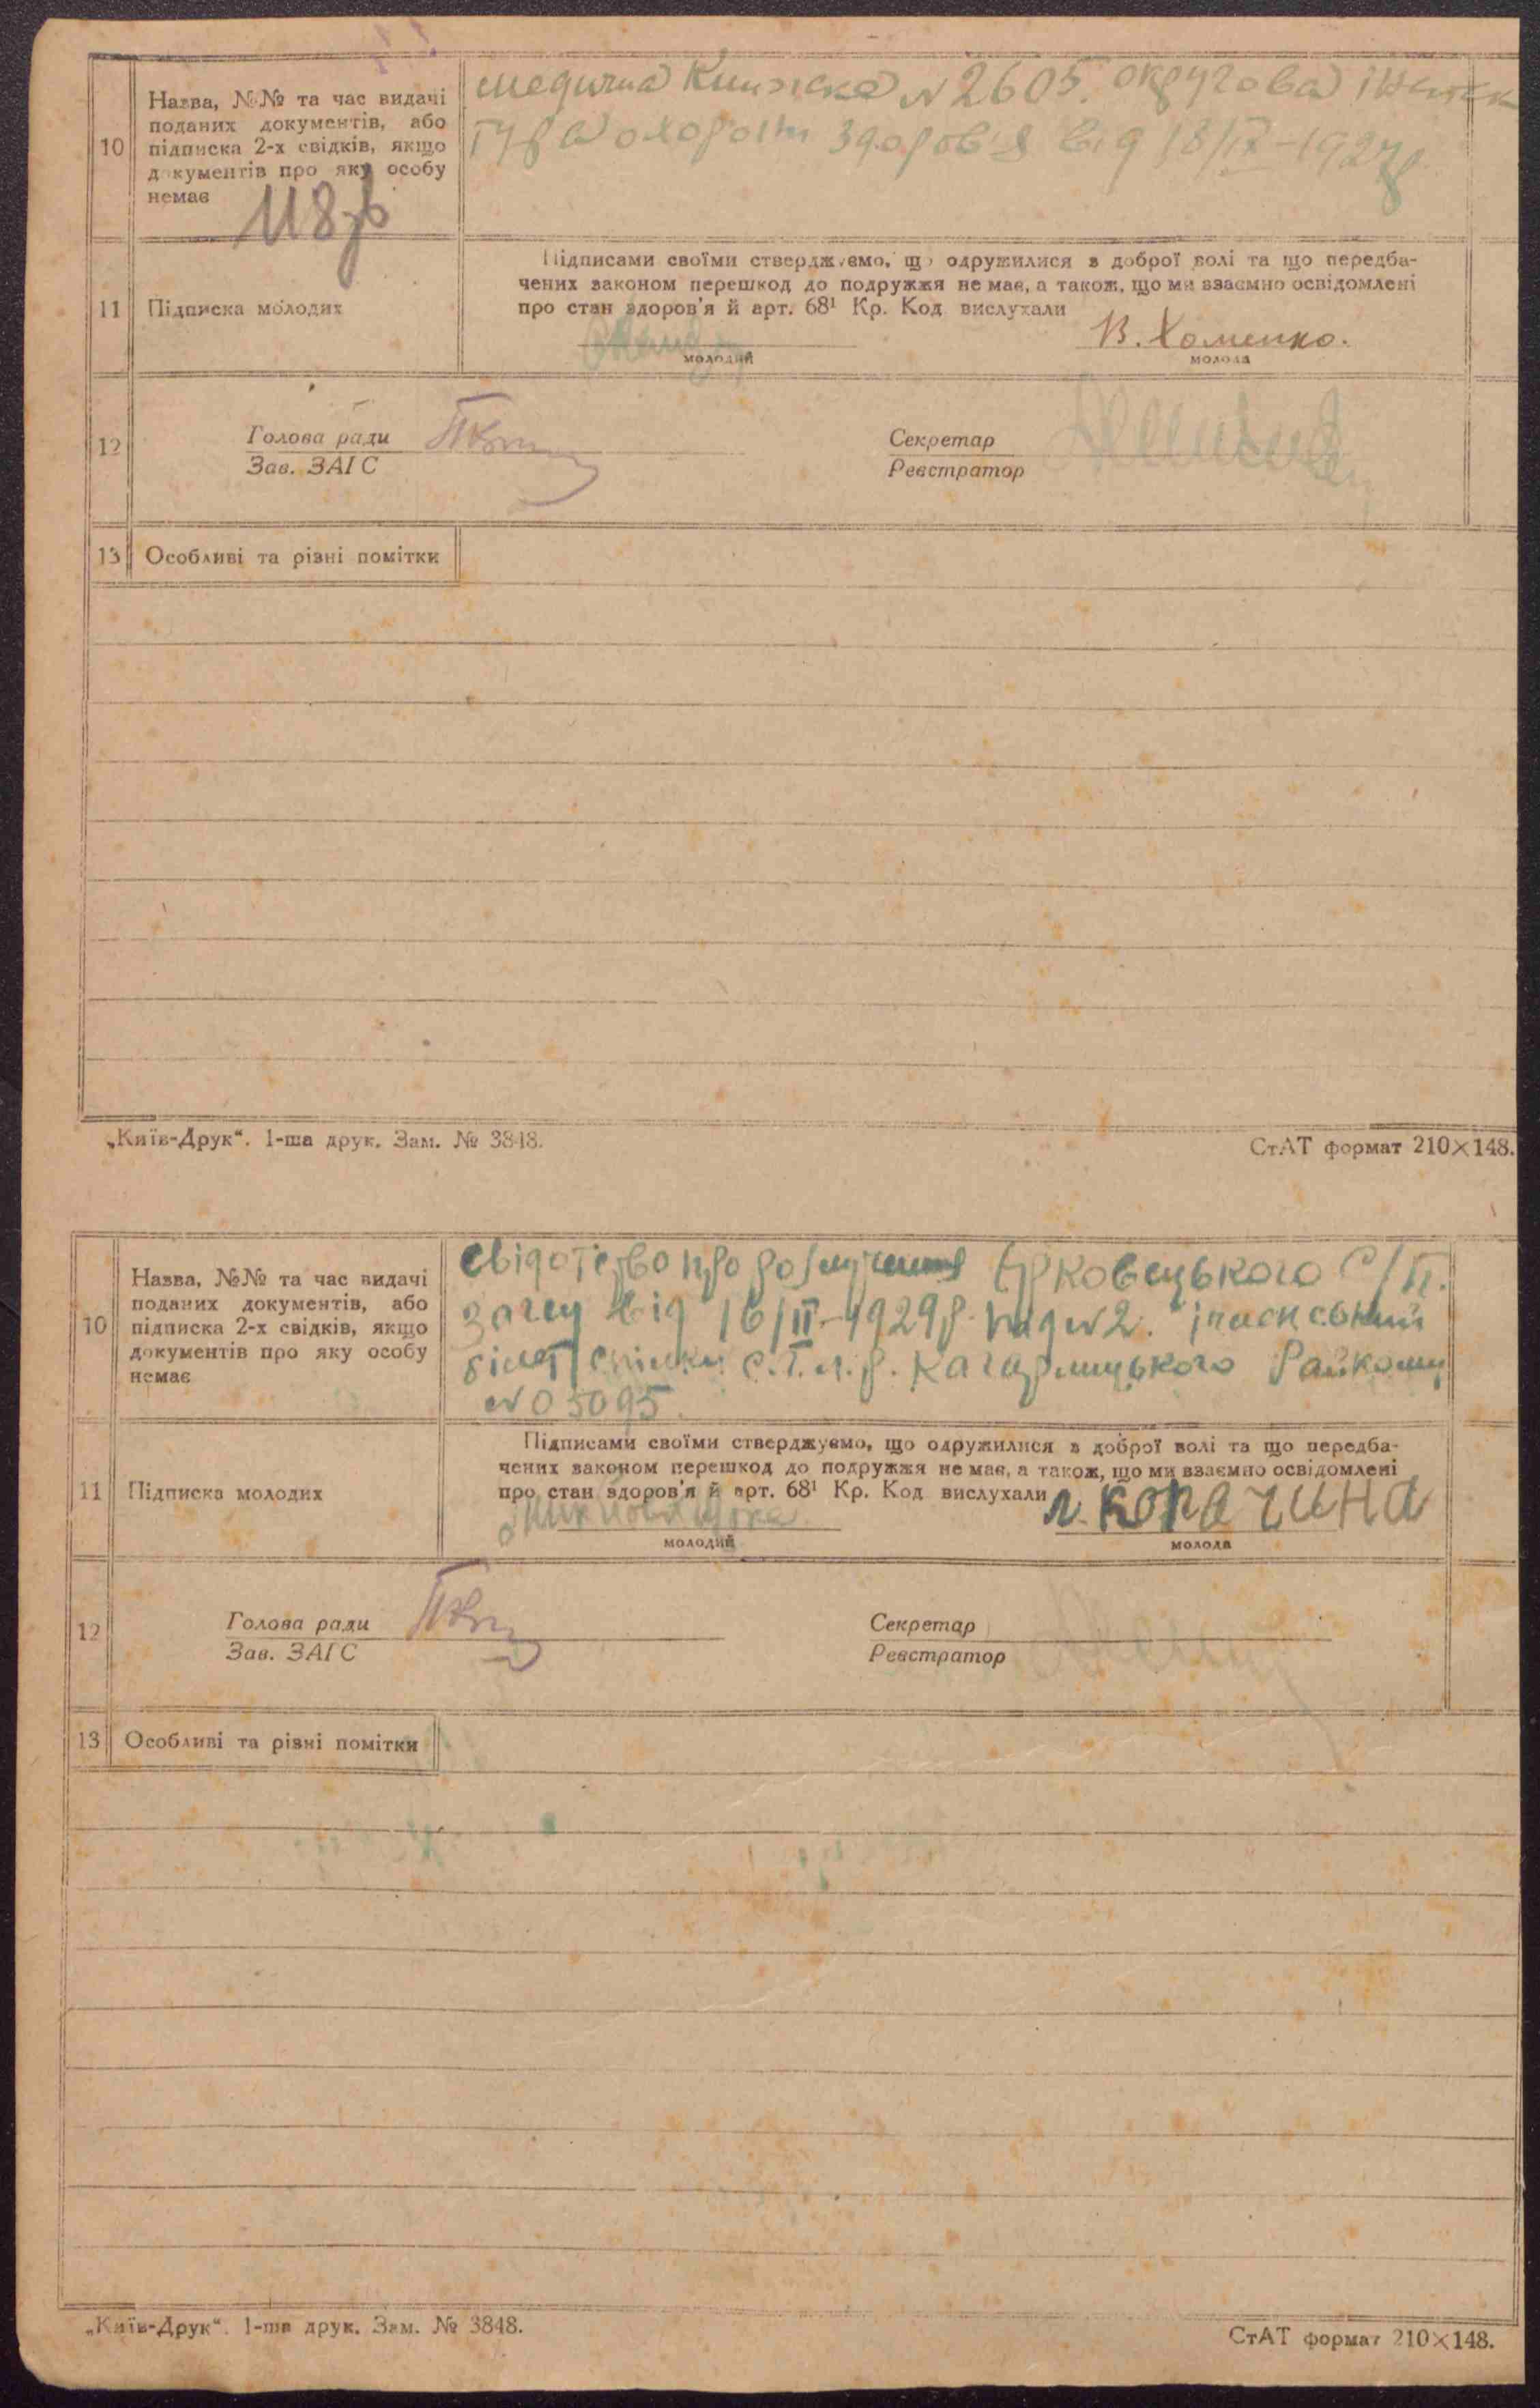 10
Назва, №№ та час видачі
поданих документів, або
підписка 2-х свідків, якщо
документів про яку особу
немає
118зв
медична Книжка № 2605. округова інспек
тура охорони здоров'я від 18/IX-1927р.
11
Підписка молодих
Підписами своїми стверджуємо, що одружилися з доброї волі та що передба-
чених законом перешкод до подружжя не має, а також, що ми взаємно освідомлені
про стан здоров'я й арт. 68¹ Кр. Код вислухали
В. Хоменко.
молодий
молода
12
Голова ради
Зав. ЗАГС
Секретар
Реєстратор
13
Особливі та різні помітки
„Київ-Друк". 1-ша друк. Зам. № 3848.
СтАТ формат 210×148.
10
Назва, №№ та час видачі
поданих документів, або
підписка 2-х свідків, якщо
документів про яку особу
немає
свідотство про розлучення С/П.
загсу від 16/II-1929р. під №2.
білет спілки с.г.л.р. Кагарлицького Райкому
№ 05095.
11
Підписка молодих
Підписами своїми стверджуємо, що одружилися з доброї волі та що передба-
чених законом перешкод до подружжя не має, а також, що ми взаємно освідомлені
про стан здоров'я й арт. 68¹ Кр. Код вислухали
копачина
молодий
молода
12
Голова ради
Зав. ЗАГС
Секретар
Реєстратор
13
Особливі та різні помітки
„Київ-Друк". 1-ша друк. Зам. № 3848.
СтАТ формат 210×148.